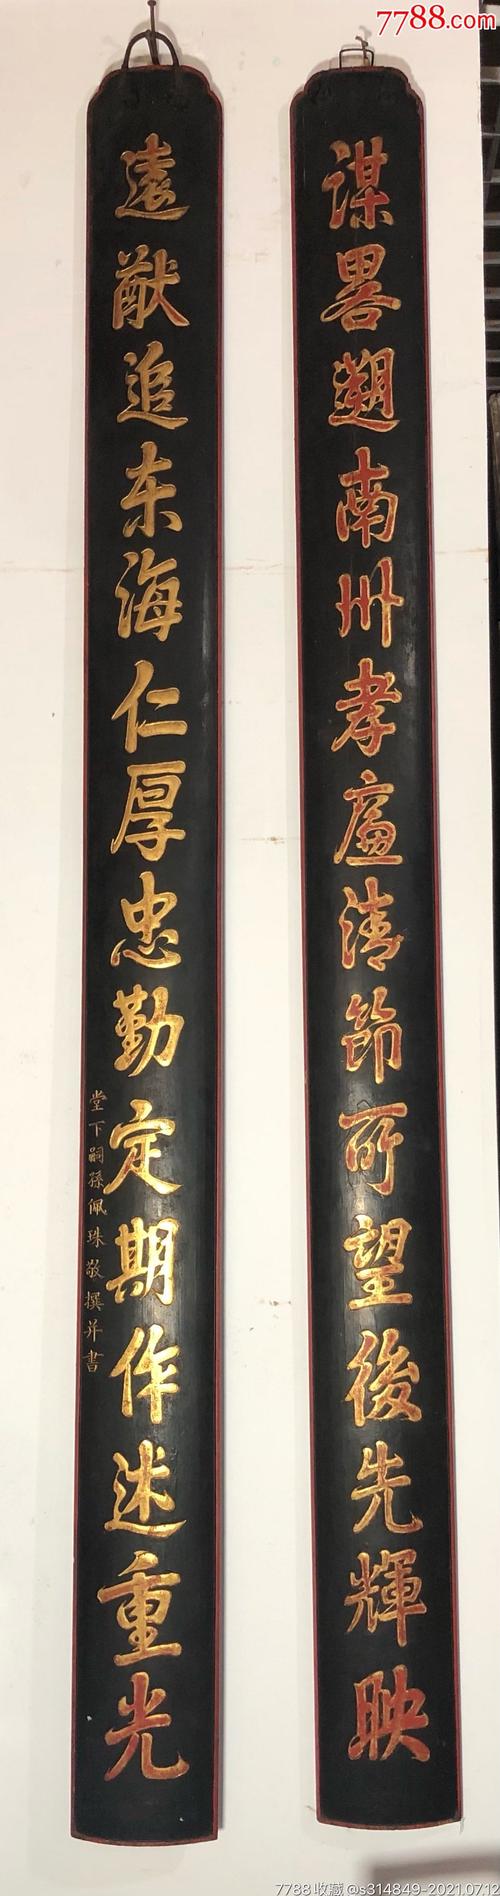 7788.com
谋畧遡南州孝廉清節所望後先輝映
遠猷追东海仁厚忠勤定期作述重光
堂下嗣孫佩珠敬撰并書
7788收藏@s314849-2021.0712